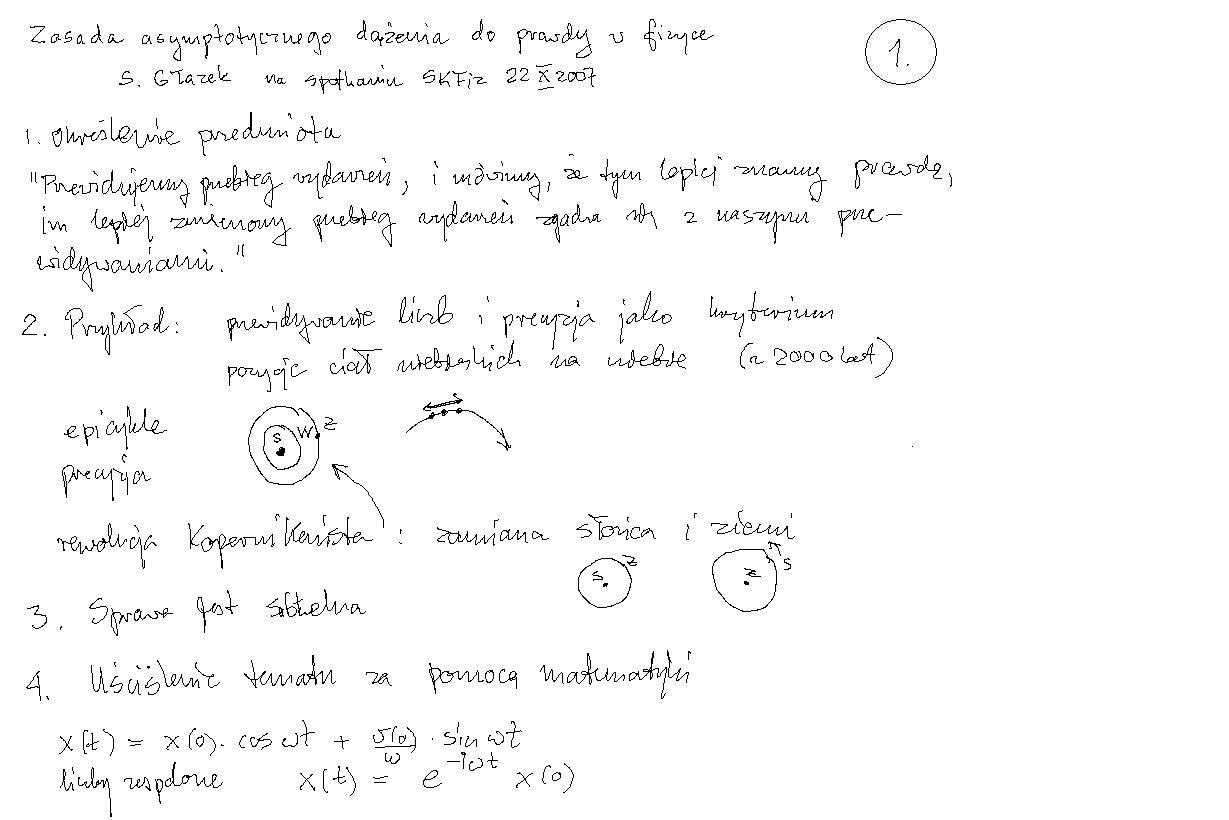 Zasada asymptotycznego dążenia do prawdy w fizyce
1.
S. Głazek na spotkaniu SKFiz 22 X 2007
1. Określenie przedmiotu
"Przewidujemy przebieg wydarzeń, i mówimy, że tym lepiej znamy prawdę,
im lepiej zmierzony przebieg wydarzeń zgadza się z naszymi prze-
widywaniami."
2. Przykład: przewidywanie liczb i precyzja jako kryterium
pozycje ciał niebieskich na niebie (~ 2000 lat)
epicykle
S W Z
precyzja
rewolucja Kopernikańska : zamiana słońca i ziemi
S Z
Z S
3. Sprawa jest subtelna
4. Uściślenie tematu za pomocą matematyki
x(t) = x(0) · cos ωt + v(0)/ω · sin ωt
liczby zespolone x(t) = e^{-iωt} x(0)